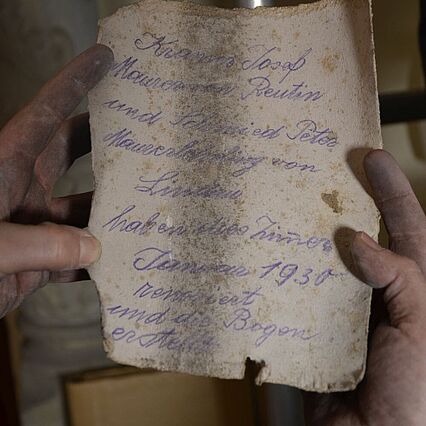 Kramer Josef
Maurer von Reutin
und Schmied Peter
Maurerlehrling von
Lindau
haben dies Zimmer
Januar 1930
renoviert
und die Bogen
erstellt